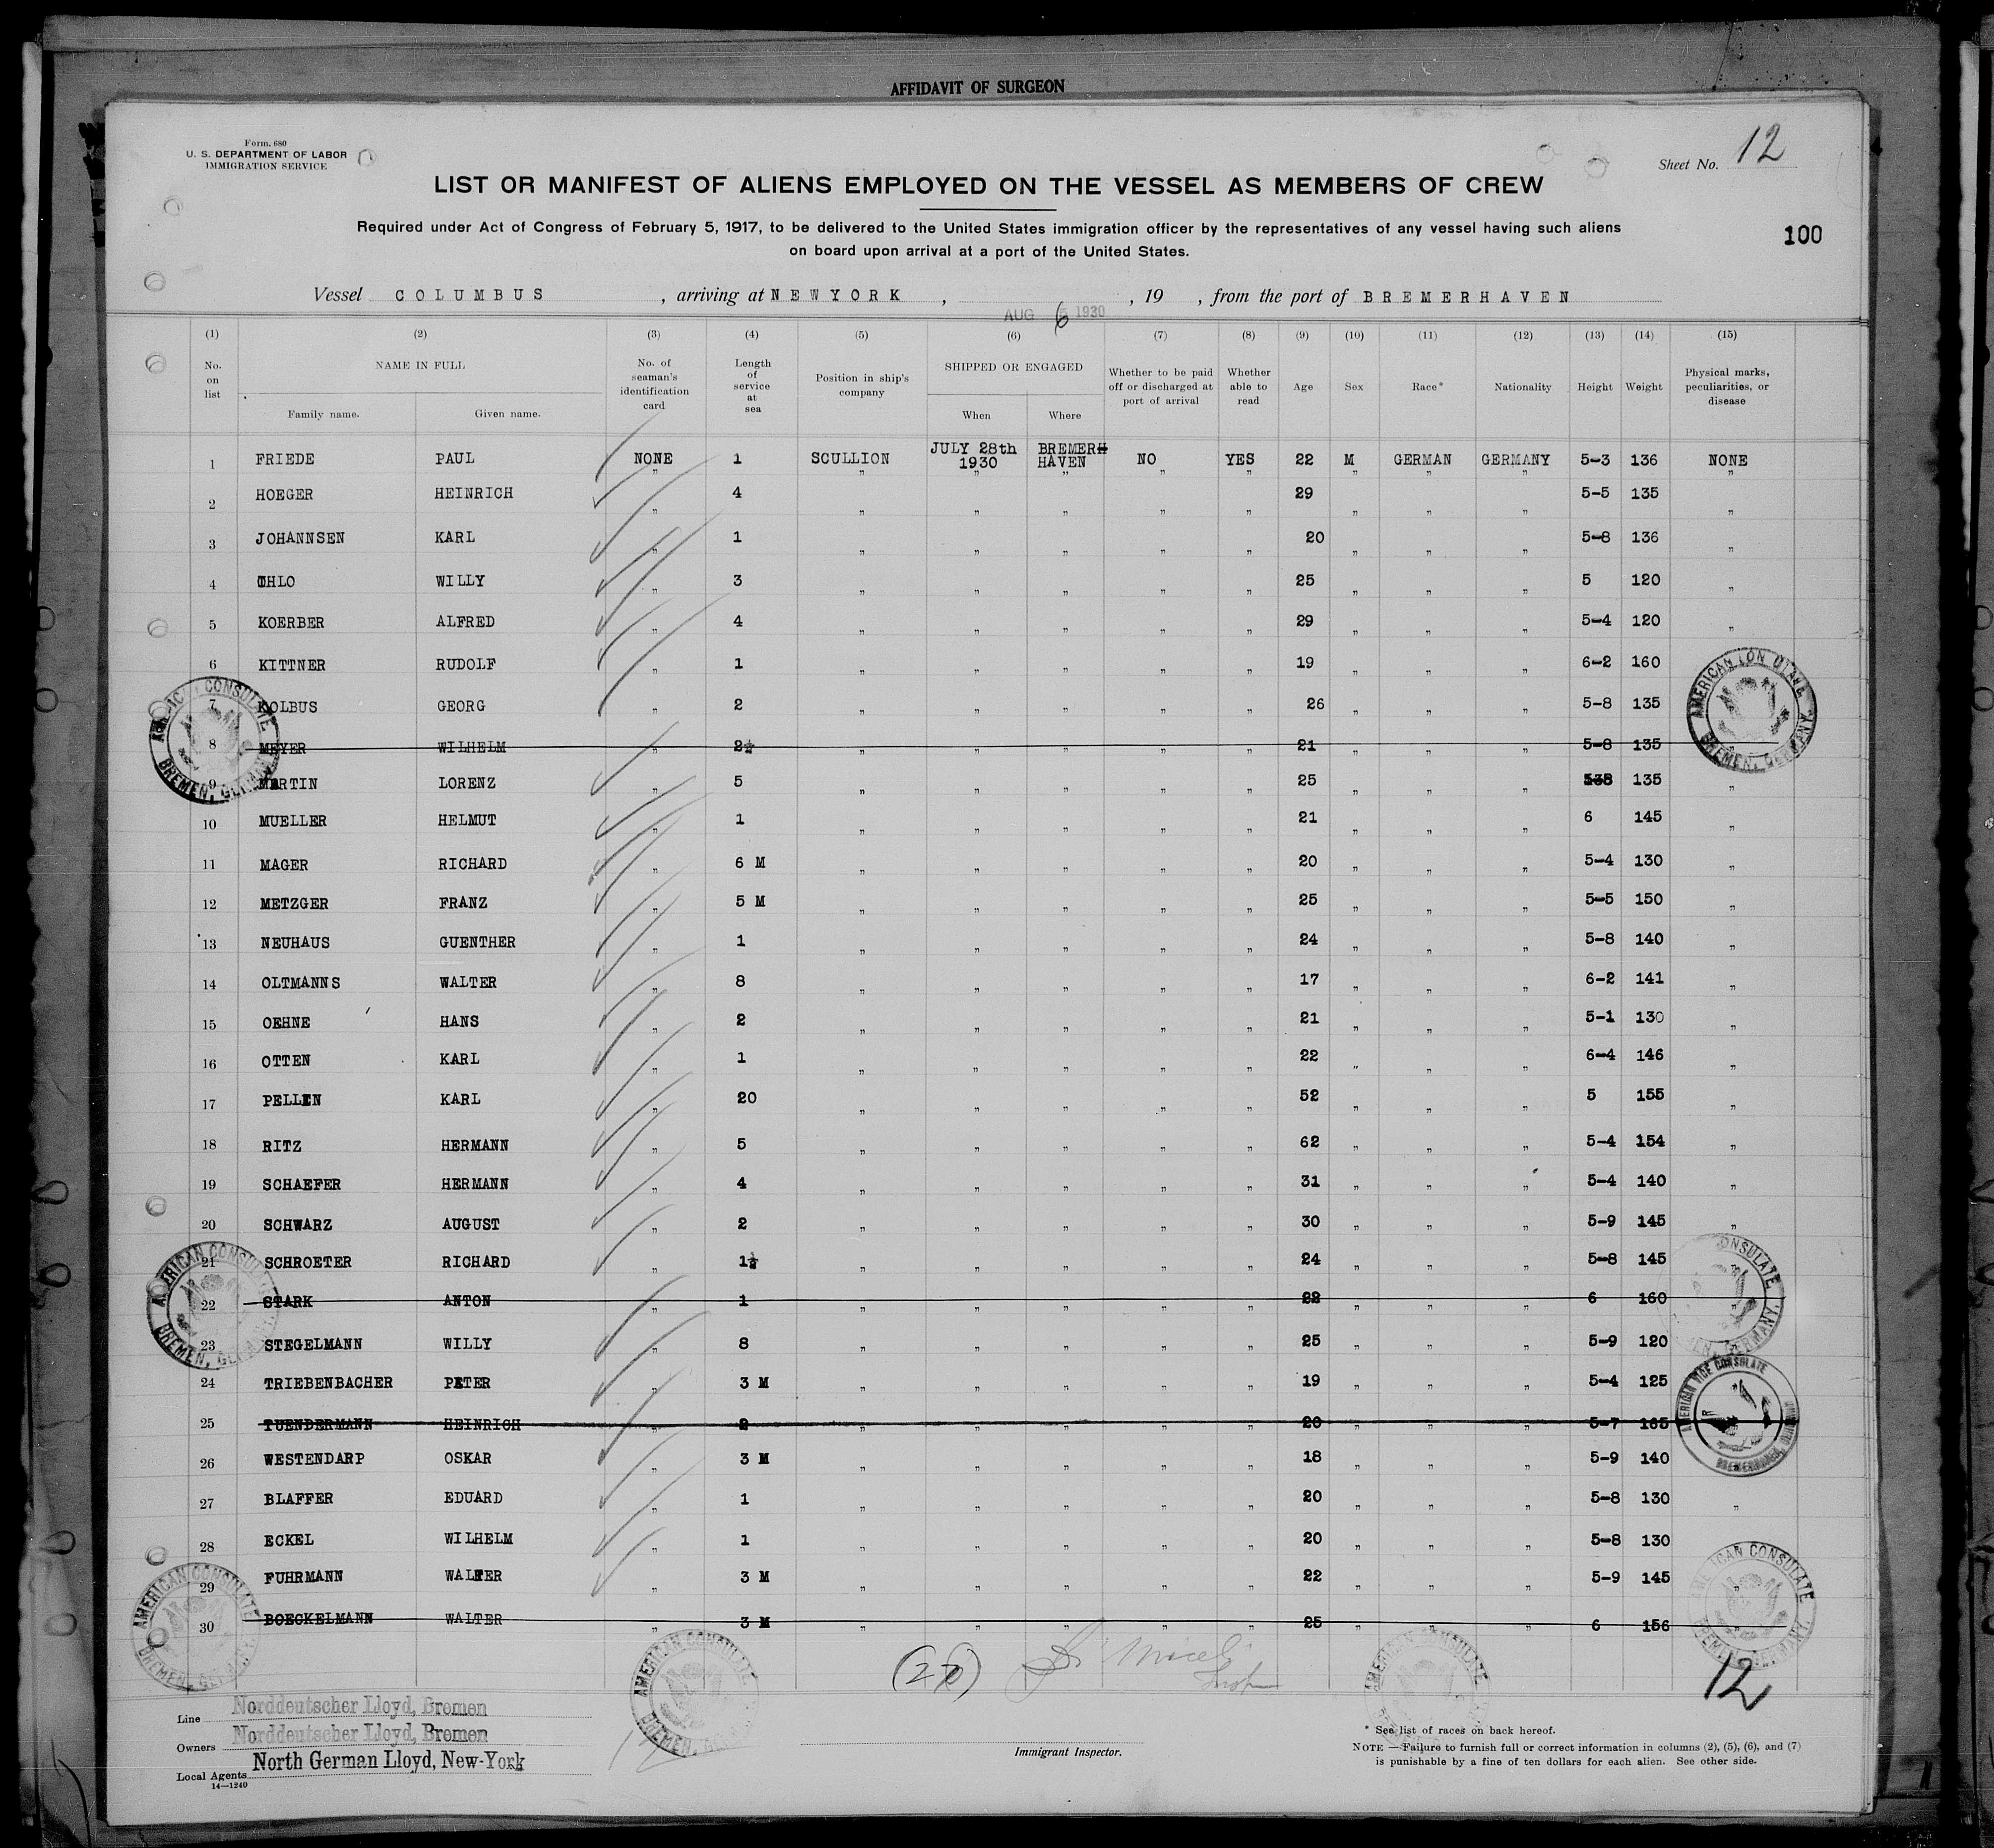 AFFIDAVIT OF SURGEON
Form. 680
U. S. DEPARTMENT OF LABOR
IMMIGRATION SERVICE
Sheet No. 12
LIST OR MANIFEST OF ALIENS EMPLOYED ON THE VESSEL AS MEMBERS OF CREW
Required under Act of Congress of February 5, 1917, to be delivered to the United States immigration officer by the representatives of any vessel having such aliens
on board upon arrival at a port of the United States.
100
Vessel COLUMBUS, arriving at NEWYORK, , 19 , from the port of BREMERHAVEN
AUG 6 1930
(1) (2) (3) (4) (5) (6) (7) (8) (9) (10) (11) (12) (13) (14) (15)
No. on list
NAME IN FULL
Family name. Given name.
No. of seaman's identification card
Length of service at sea
Position in ship's company
SHIPPED OR ENGAGED
When Where
Whether to be paid off or discharged at port of arrival
Whether able to read
Age
Sex
Race*
Nationality
Height
Weight
Physical marks, peculiarities, or disease
1 FRIEDE PAUL NONE 1 SCULLION JULY 28th 1930 BREMERH HAVEN NO YES 22 M GERMAN GERMANY 5-3 136 NONE
2 HOEGER HEINRICH " 4 " " " " " 29 " " " 5-5 135 "
3 JOHANNSEN KARL " 1 " " " " " 20 " " " 5-8 136 "
4 OHLO WILLY " 3 " " " " " 25 " " " 5 120 "
5 KOERBER ALFRED " 4 " " " " " 29 " " " 5-4 120 "
6 KITTNER RUDOLF " 1 " " " " " 19 " " " 6-2 160
7 KOLBUS GEORG " 2 " " " " " 26 " " " 5-8 135
8 MEYER WILHELM " 2½ " " " " " 21 " " " 5-8 135
9 MARTIN LORENZ " 5 " " " " " 25 " " " 135 "
10 MUELLER HELMUT " 1 " " " " " 21 " " " 6 145 "
11 MAGER RICHARD " 6 M " " " " " 20 " " " 5-4 130 "
12 METZGER FRANZ " 5 M " " " " " 25 " " " 5-5 150 "
13 NEUHAUS GUENTHER " 1 " " " " " 24 " " " 5-8 140 "
14 OLTMANNS WALTER " 8 " " " " " 17 " " " 6-2 141 "
15 OEHNE HANS " 2 " " " " " 21 " " " 5-1 130 "
16 OTTEN KARL " 1 " " " " " 22 " " " 6-4 146 "
17 PELLIN KARL " 20 " " " " " 52 " " " 5 155 "
18 RITZ HERMANN " 5 " " " " " 62 " " " 5-4 154 "
19 SCHAEFER HERMANN " 4 " " " " " 31 " " " 5-4 140 "
20 SCHWARZ AUGUST " 2 " " " " " 30 " " " 5-9 145 "
21 SCHROETER RICHARD " 1½ " " " " " 24 " " " 5-8 145
22 STARK ANTON " 1 " " " " " 22 " " " 6 160 "
23 STEGELMANN WILLY " 8 " " " " " 25 " " " 5-9 120 "
24 TRIEBENBACHER PETER " 3 M " " " " " 19 " " " 5-4 125
25 TUENDERMANN HEINRICH " 2 " " " " " 20 " " " 5-7 165
26 WESTENDARP OSKAR " 3 M " " " " " 18 " " " 5-9 140 "
27 BLAFFER EDUARD " 1 " " " " " 20 " " " 5-8 130 "
28 ECKEL WILHELM " 1 " " " " " 20 " " " 5-8 130
29 FUHRMANN WALTER " 3 M " " " " " 22 " " " 5-9 145 "
30 BOECKELMANN WALTER " 3 M " " " " " 25 " " " 6 156 "
AMERICAN CONSULATE BREMEN, GERMANY
AMERICAN CONSULATE BREMEN, GERMANY
AMERICAN CONSULATE BREMEN, GERMANY
AMERICAN CONSULATE BREMEN, GERMANY
AMERICAN VICE CONSULATE BREMERHAVEN, GERMANY
AMERICAN CONSULATE BREMEN, GERMANY
AMERICAN CONSULATE BREMEN, GERMANY
AMERICAN CONSULATE BREMEN, GERMANY
AMERICAN CONSULATE
12
Line Norddeutscher Lloyd, Bremen
Owners Norddeutscher Lloyd, Bremen
Local Agents North German Lloyd, New-York
14—1240
Immigrant Inspector.
* See list of races on back hereof.
NOTE — Failure to furnish full or correct information in columns (2), (5), (6), and (7)
is punishable by a fine of ten dollars for each alien. See other side.